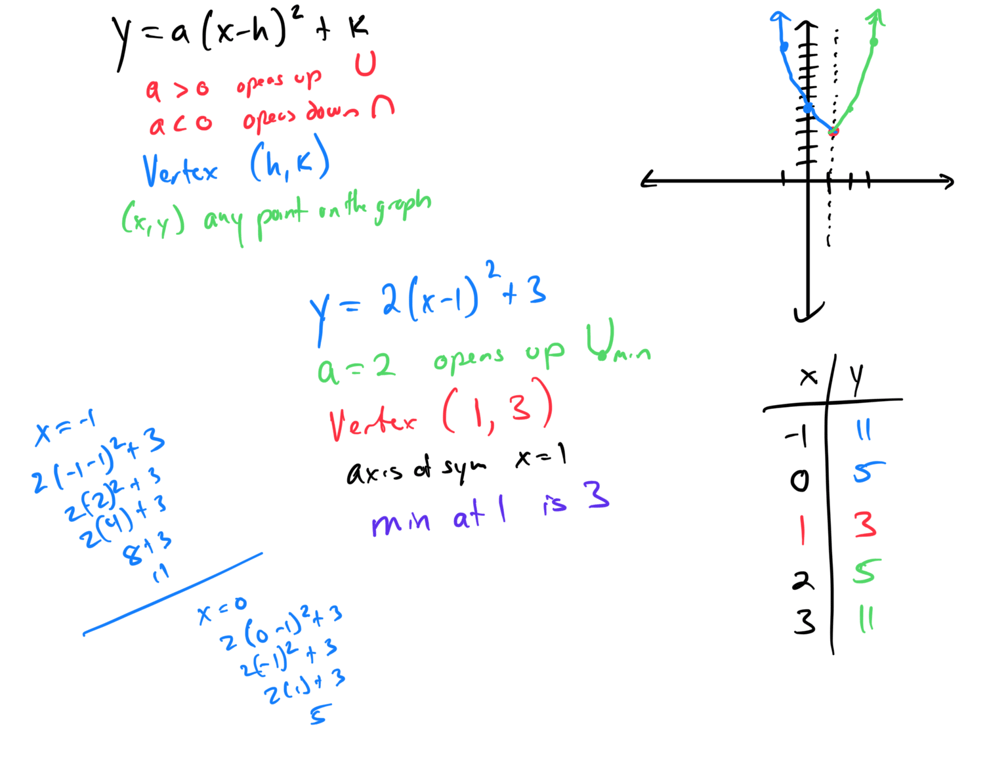 y = a(x-h)² + k
a > 0 opens up ∪
a < 0 opens down ∩
Vertex (h, k)
(x, y) any point on the graph
y = 2(x-1)² + 3
a = 2 opens up ∪ min
Vertex (1, 3)
axis of sym x = 1
min at 1 is 3
x = -1
2(-1-1)² + 3
2(-2)² + 3
2(4) + 3
8 + 3
11
x = 0
2(0-1)² + 3
2(-1)² + 3
2(1) + 3
5
x y
-1 11
0 5
1 3
2 5
3 11